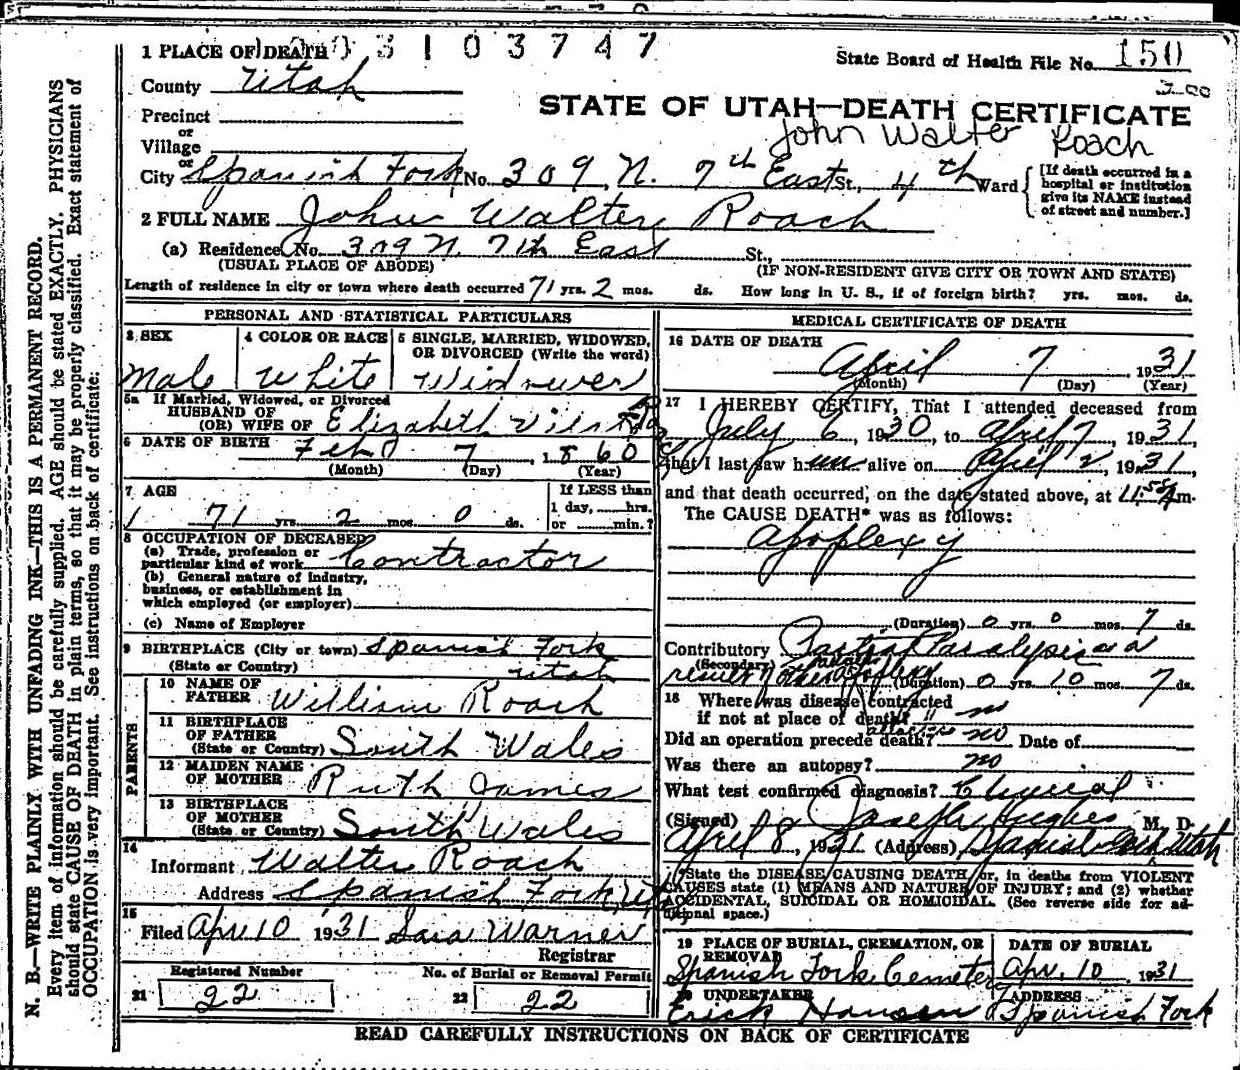 1 PLACE OF DEATH 3 1 0 3 7 4 7
State Board of Health File No. 150
County Utah
STATE OF UTAH—DEATH CERTIFICATE
Precinct
or
Village
John Walter Roach
or
City Spanish Fork No. 309 N. 7th East St., 4th Ward
[If death occurred in a hospital or institution give its NAME instead of street and number.]
2 FULL NAME John Walter Roach
(a) Residence No. 309 N. 7th East St.,
(USUAL PLACE OF ABODE) (IF NON-RESIDENT GIVE CITY OR TOWN AND STATE)
Length of residence in city or town where death occurred 71 yrs. 2 mos. ds. How long in U. S., if of foreign birth? yrs. mos. ds.
PERSONAL AND STATISTICAL PARTICULARS
3 SEX
Male
4 COLOR OR RACE
White
5 SINGLE, MARRIED, WIDOWED,
OR DIVORCED (Write the word)
Widower
5a If Married, Widowed, or Divorced
HUSBAND OF
(OR) WIFE OF Elizabeth
6 DATE OF BIRTH Feb 7, 1860
(Month) (Day) (Year)
7 AGE
71 yrs. 2 mos. 0 ds.
If LESS than
1 day, hrs.
or min.?
8 OCCUPATION OF DECEASED
(a) Trade, profession or
particular kind of work Contractor
(b) General nature of industry,
business, or establishment in
which employed (or employer)
(c) Name of Employer
9 BIRTHPLACE (City or town) Spanish Fork
(State or Country) Utah
PARENTS
10 NAME OF
FATHER William Roach
11 BIRTHPLACE
OF FATHER
(State or Country) South Wales
12 MAIDEN NAME
OF MOTHER Ruth James
13 BIRTHPLACE
OF MOTHER
(State or Country) South Wales
14
Informant Walter Roach
Address Spanish Fork, Utah
15
Filed Apr 10 1931 Sara Warner
Registrar
Registered Number
21 22
No. of Burial or Removal Permit
22 22
MEDICAL CERTIFICATE OF DEATH
16 DATE OF DEATH
April 7 1931
(Month) (Day) (Year)
17 I HEREBY CERTIFY, That I attended deceased from
July 6, 1930, to April 7, 1931,
that I last saw him alive on April 2, 1931,
and that death occurred, on the date stated above, at 11:58 m.
The CAUSE DEATH* was as follows:
Apoplexy
(Duration) 0 yrs. 0 mos. 7 ds.
Contributory Partial Paralysis as a
(Secondary)
result of other apoplexy (Duration) 0 yrs. 10 mos. 7 ds.
attacks
18 Where was disease contracted
if not at place of death? no
Did an operation precede death? no Date of
Was there an autopsy? no
What test confirmed diagnosis? Clinical
(Signed) Joseph Hughes M. D.
April 8, 1931 (Address) Spanish Fork Utah
*State the DISEASE CAUSING DEATH, or, in deaths from VIOLENT
CAUSES state (1) MEANS AND NATURE OF INJURY; and (2) whether
ACCIDENTAL, SUICIDAL OR HOMICIDAL. (See reverse side for ad-
ditional space.)
19 PLACE OF BURIAL, CREMATION, OR
REMOVAL
Spanish Fork Cemetery
DATE OF BURIAL
Apr. 10 1931
20 UNDERTAKER
Erick Hansen
ADDRESS
Spanish Fork
READ CAREFULLY INSTRUCTIONS ON BACK OF CERTIFICATE
N. B.—WRITE PLAINLY WITH UNFADING INK—THIS IS A PERMANENT RECORD.
Every item of information should be carefully supplied. AGE should be stated EXACTLY. PHYSICIANS
should state CAUSE OF DEATH in plain terms, so that it may be properly classified. Exact statement of
OCCUPATION is very important. See instructions on back of certificate.